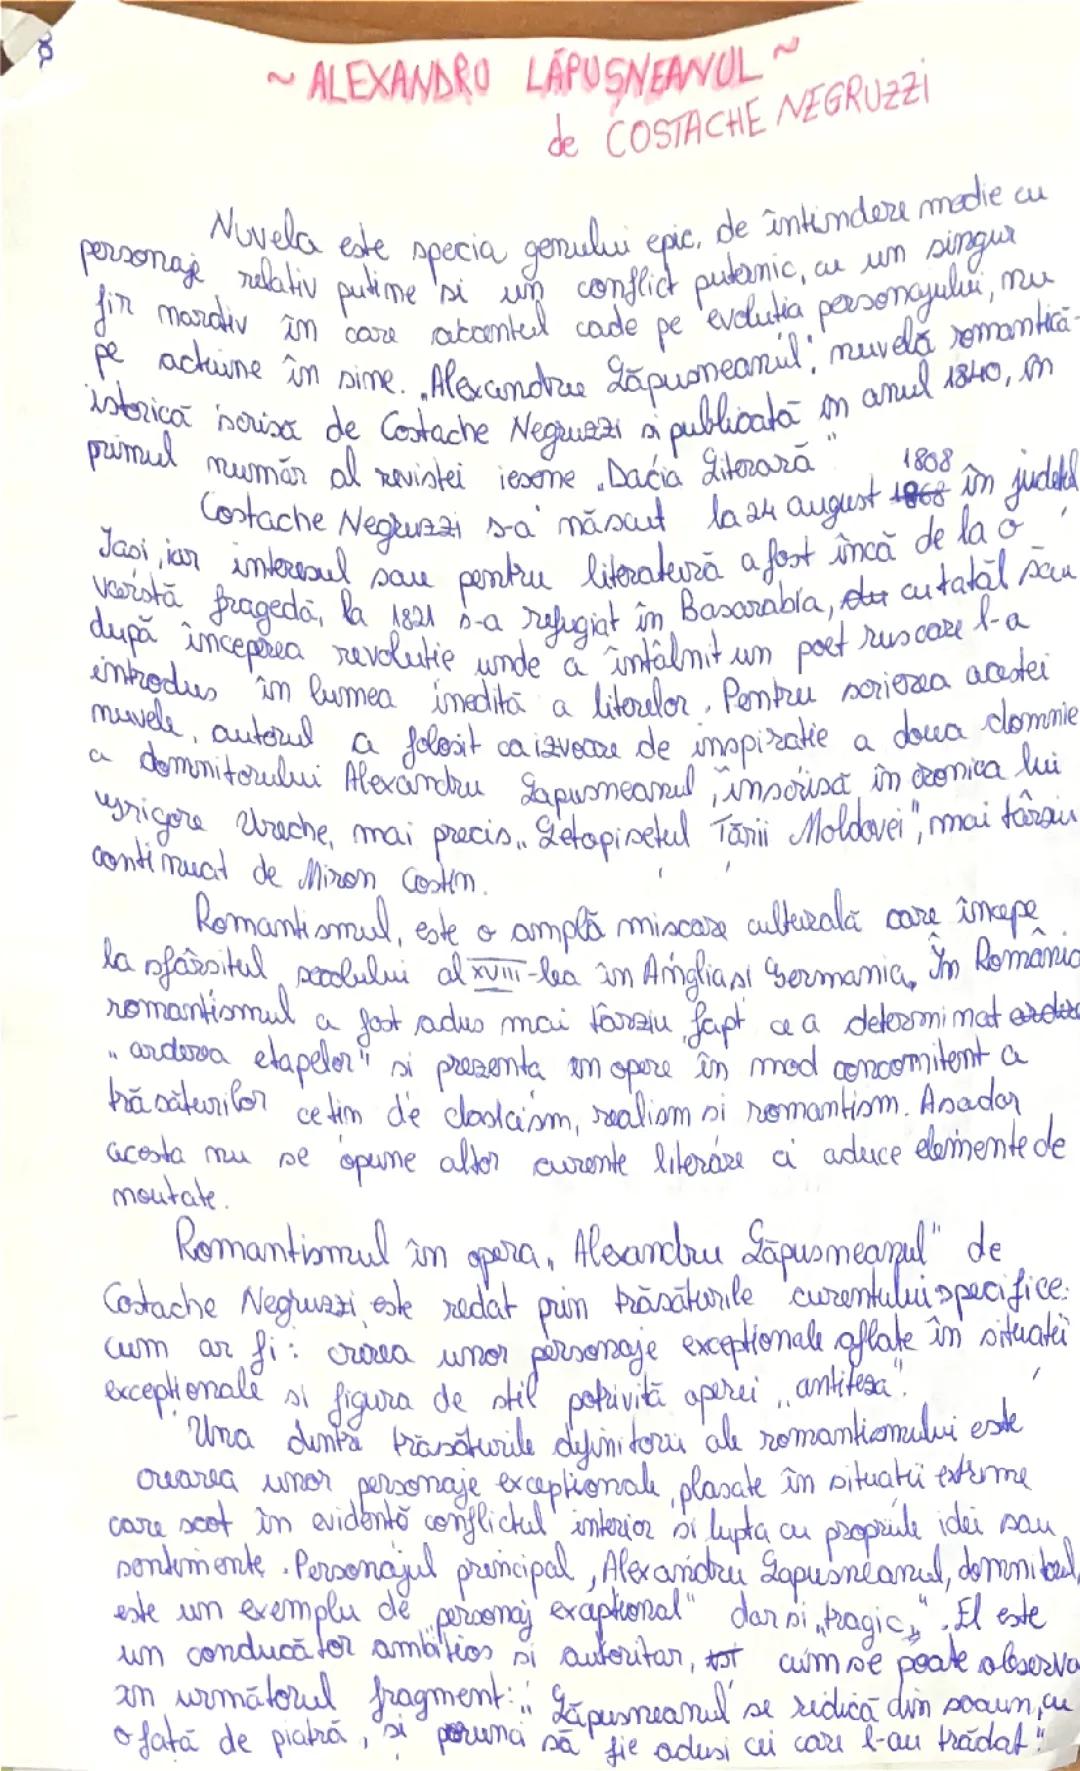 ~ ALEXANDRU LĂPUȘNEANUL ~
de COSTACHE NEGRUZZI
Nuvela este specia genului epic, de întindere medie cu
personaje relativ putine si un conflict puternic, cu un singur
fir narativ în care accentul cade pe evolutia personajului, nu
pe actiune în sine. „Alexandru Lăpusneanul", nuvelă romantică-
istorică scrisă de Costache Negruzzi si publicată în anul 1840, în
primul număr al revistei iesene „Dacia Literară"
Costache Negruzzi s-a născut la 24 august 1808 în judetul
Iasi, iar interesul sau pentru literatură a fost încă de la o
varstă fragedă, la 1821 s-a refugiat în Basarabia, cu tatăl său
după începerea revolutie unde a întâlnit un poet rus care l-a
introdus în lumea inedită a literelor. Pentru scrierea acestei
nuvele, autorul a folosit ca izvoare de inspiratie a doua domnie
a domnitorului Alexandru Lapusneanul, înscrisă în cronica lui
Grigore Ureche, mai precis „Letopisetul Țării Moldovei", mai târziu
continuat de Miron Costin.
Romantismul, este o amplă miscare culturală care începe
la sfârsitul secolului al XVIII-lea în Anglia si Germania. În România
romantismul a fost adus mai târziu, fapt ce a determinat
„arderea etapelor" si prezenta în opere în mod concomitent a
trăsăturilor ce tin de clasicism, realism si romantism. Asadar
acesta nu se opune altor curente literare ci aduce elemente de
noutate.
Romantismul în opera „Alexandru Lăpusneanul" de
Costache Negruzzi este redat prin trăsăturile curentului specifice:
cum ar fi: crearea unor personaje exceptionale aflate în situatii
exceptionale si figura de stil potrivită operei „antiteza".
Una dintre trăsăturile definitorii ale romantismului este
crearea unor personaje exceptionale, plasate în situatii extreme
care scot în evidentă conflictul interior si lupta cu propriile idei sau
sentimente. Personajul principal, Alexandru Lapusneanul, domnitorul,
este un exemplu de personaj exceptional" dar si „tragic". El este
un conducător ambitios si autoritar, cum se poate observa
în următorul fragment: „Lăpusneanul se ridică din scaun, cu
o fată de piatră, si porunci să fie adusi cei care l-au trădat"